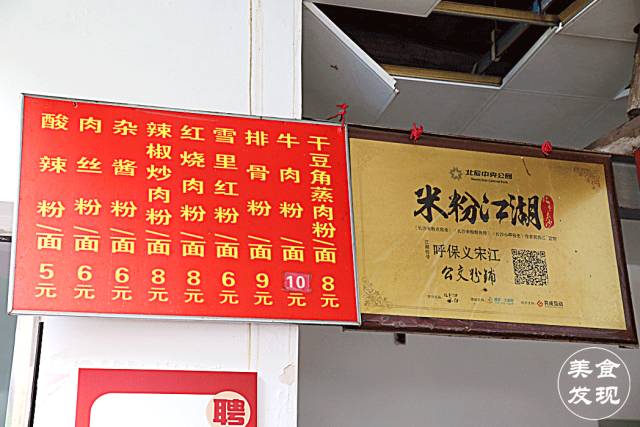 酸辣粉/面5元
肉丝粉/面6元
杂酱粉/面6元
辣椒炒肉粉/面8元
红烧肉粉/面8元
雪里红粉/面6元
排骨粉/面9元
牛肉粉/面10元
干豆角蒸肉粉/面8元
北辰中央公园
米粉江湖
呼保义宋江
公交粉铺
聘
美食
发现